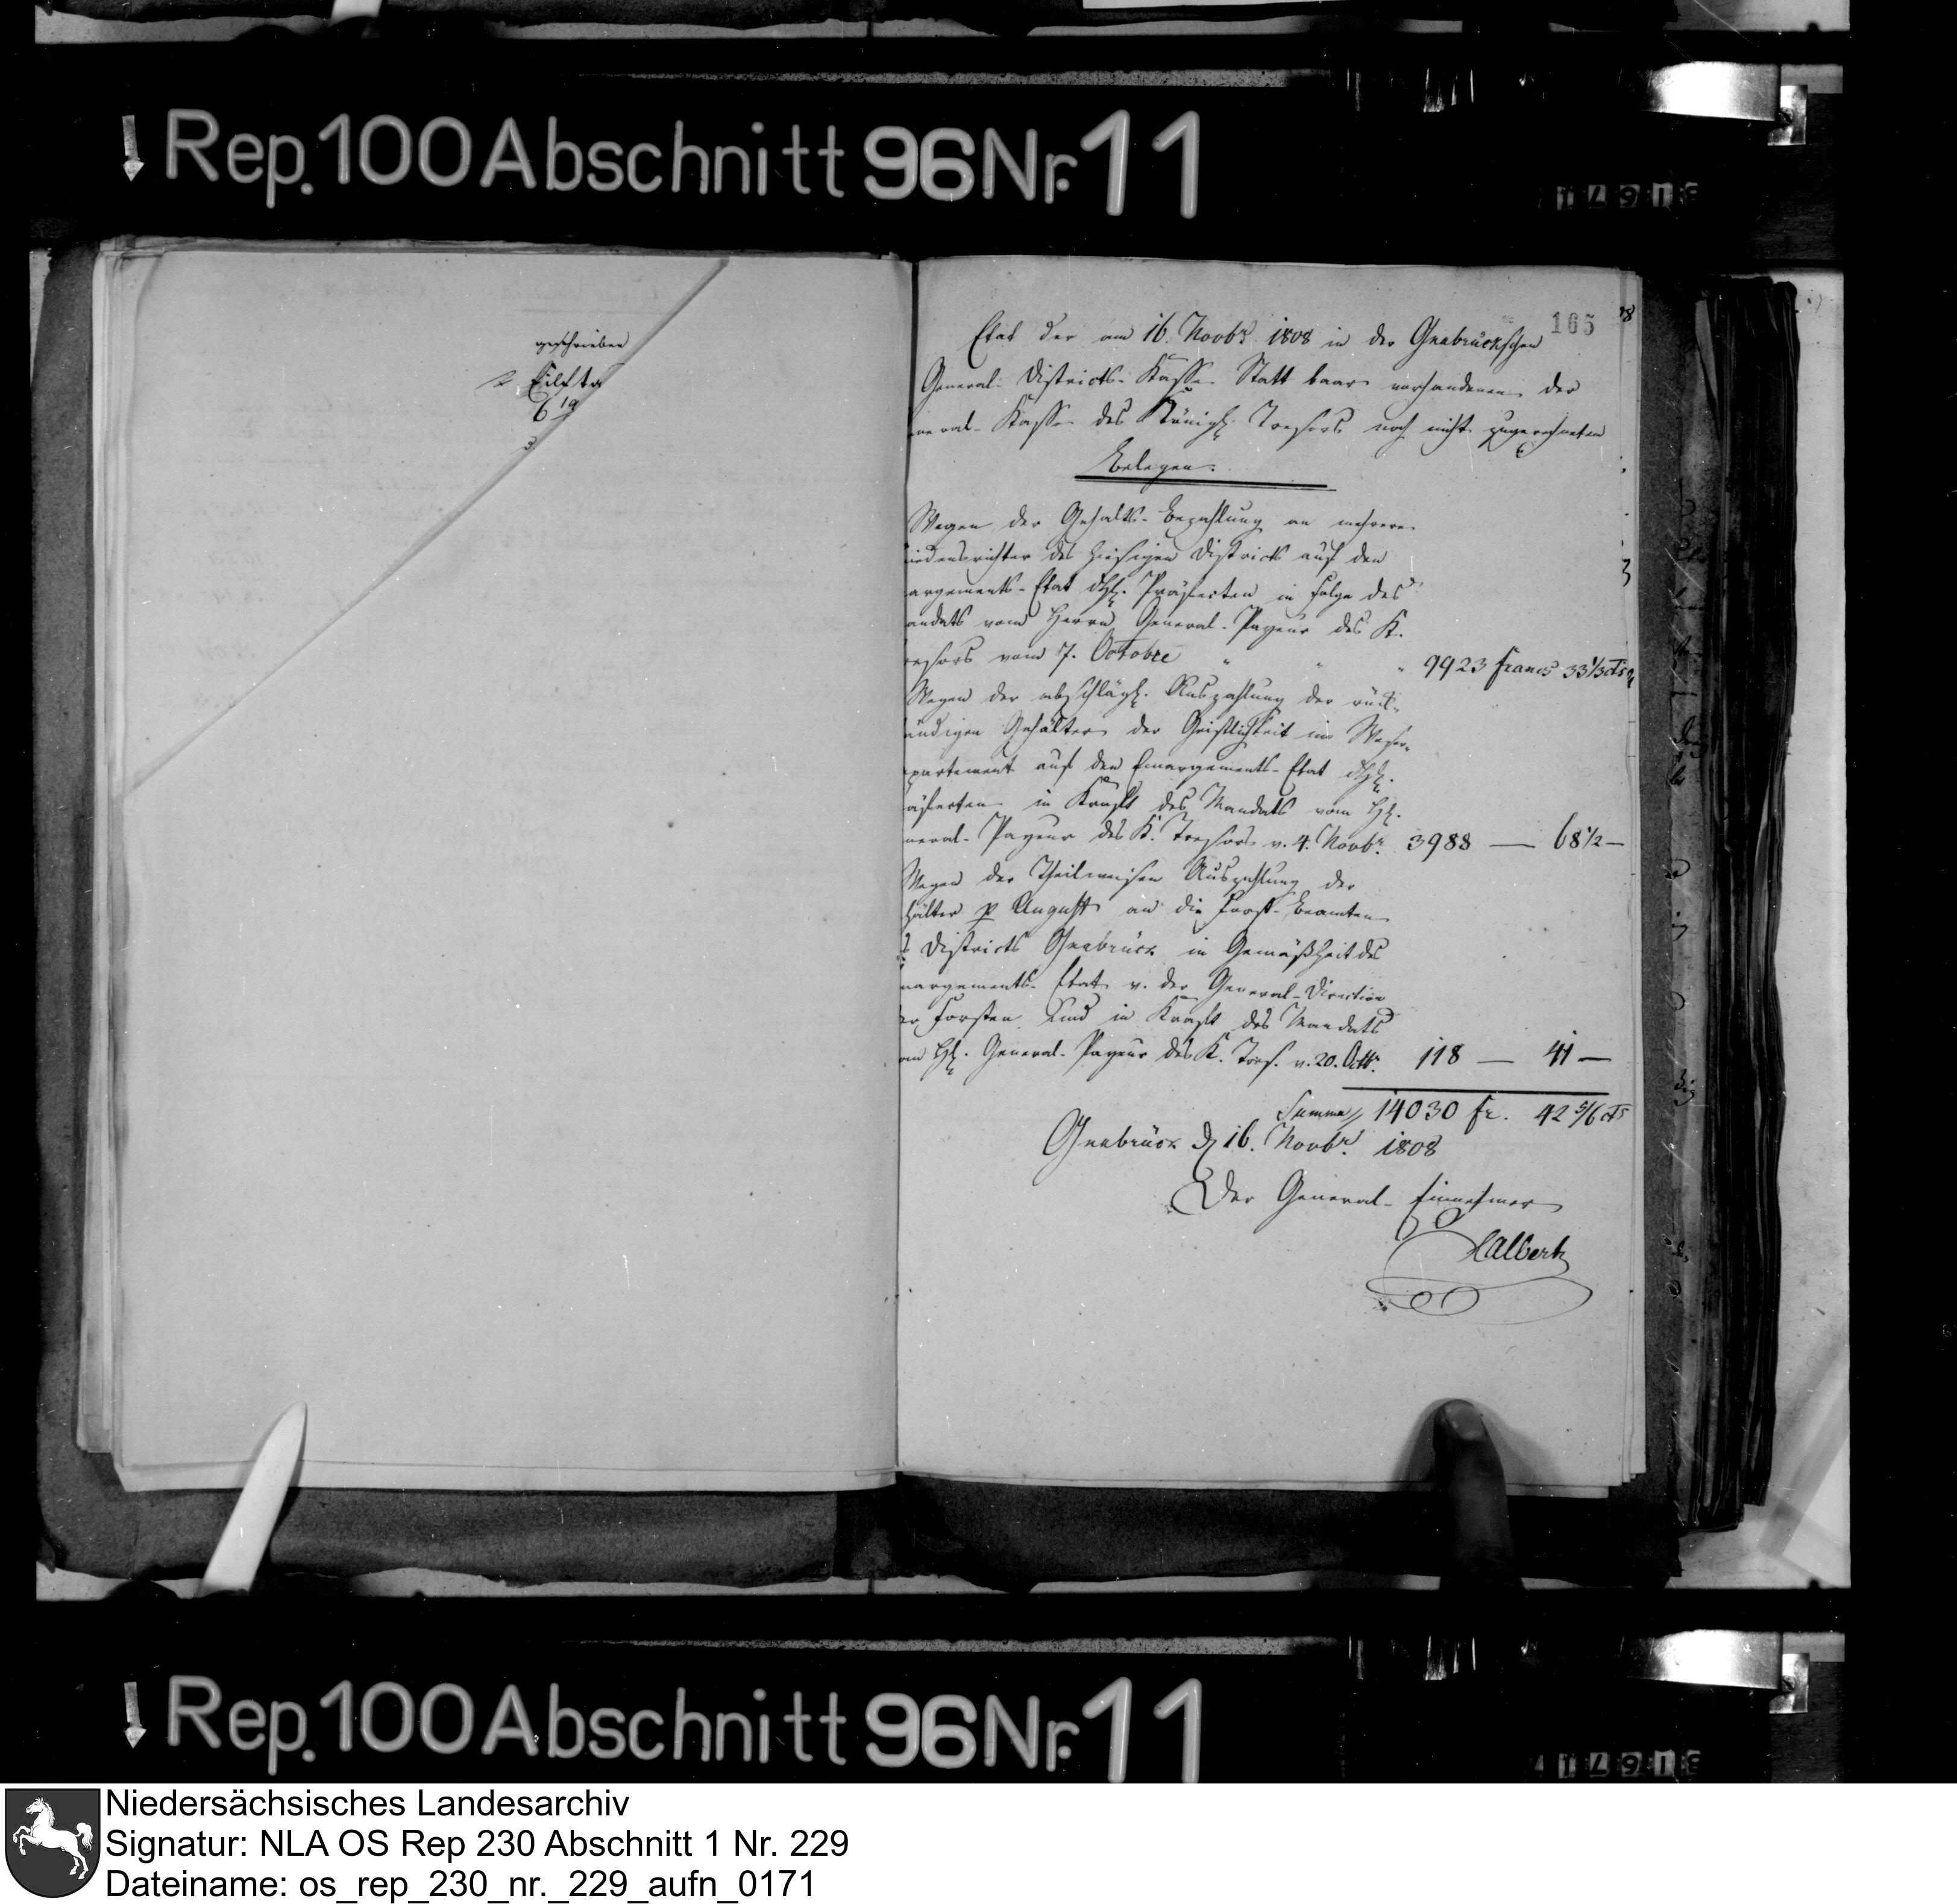 Rep. 100 Abschnitt 96 Nr. 11
geschrieben
165
Etat der am 16. Novbr 1808 in der Osnabrückschen
General- Districts- Kasse Statt baar vorhandenen der
neral- Kasse des Königl. Tresors noch nicht zugerechneten
Belegen.
Wegen der Gehalts- Bezahlung an mehrere
iedensrichter des hiesigen Districts auf den
argements- Etat Präfecten in Folge des
andats vom Herrn General- Payeur des K.
resors vom 7. Octobre " " " 9923 francs 33 1/3 cts
Wegen der abschlägl. Auszahlung der rück-
ändigen Gehälter der Geistlichkeit im Weser-
partement auf den Emargements- Etat
äfecten in Kraft des Mandats vom H.
neral- Payeur des K. Tresors v. 4. Novbr. 3988 — 68 1/2 —
Wegen der Theilweisen Auszahlung der
hälter p August an die Forst- Beamten
s Districts Osnabrück in Gemäßheit des
margements- Etat v. der General- Direction
er Forsten und in Kraft des Mandats
om H. General- Payeur des K. Tres. v. 20. Octbr. 118 — 41 —
Summa 14030 fr. 42 5/6 cts
Osnabrück d 16. Novbr. 1808
Der General- Einnehmer
Rep. 100 Abschnitt 96 Nr. 11
Niedersächsisches Landesarchiv
Signatur: NLA OS Rep 230 Abschnitt 1 Nr. 229
Dateiname: os_rep_230_nr._229_aufn_0171